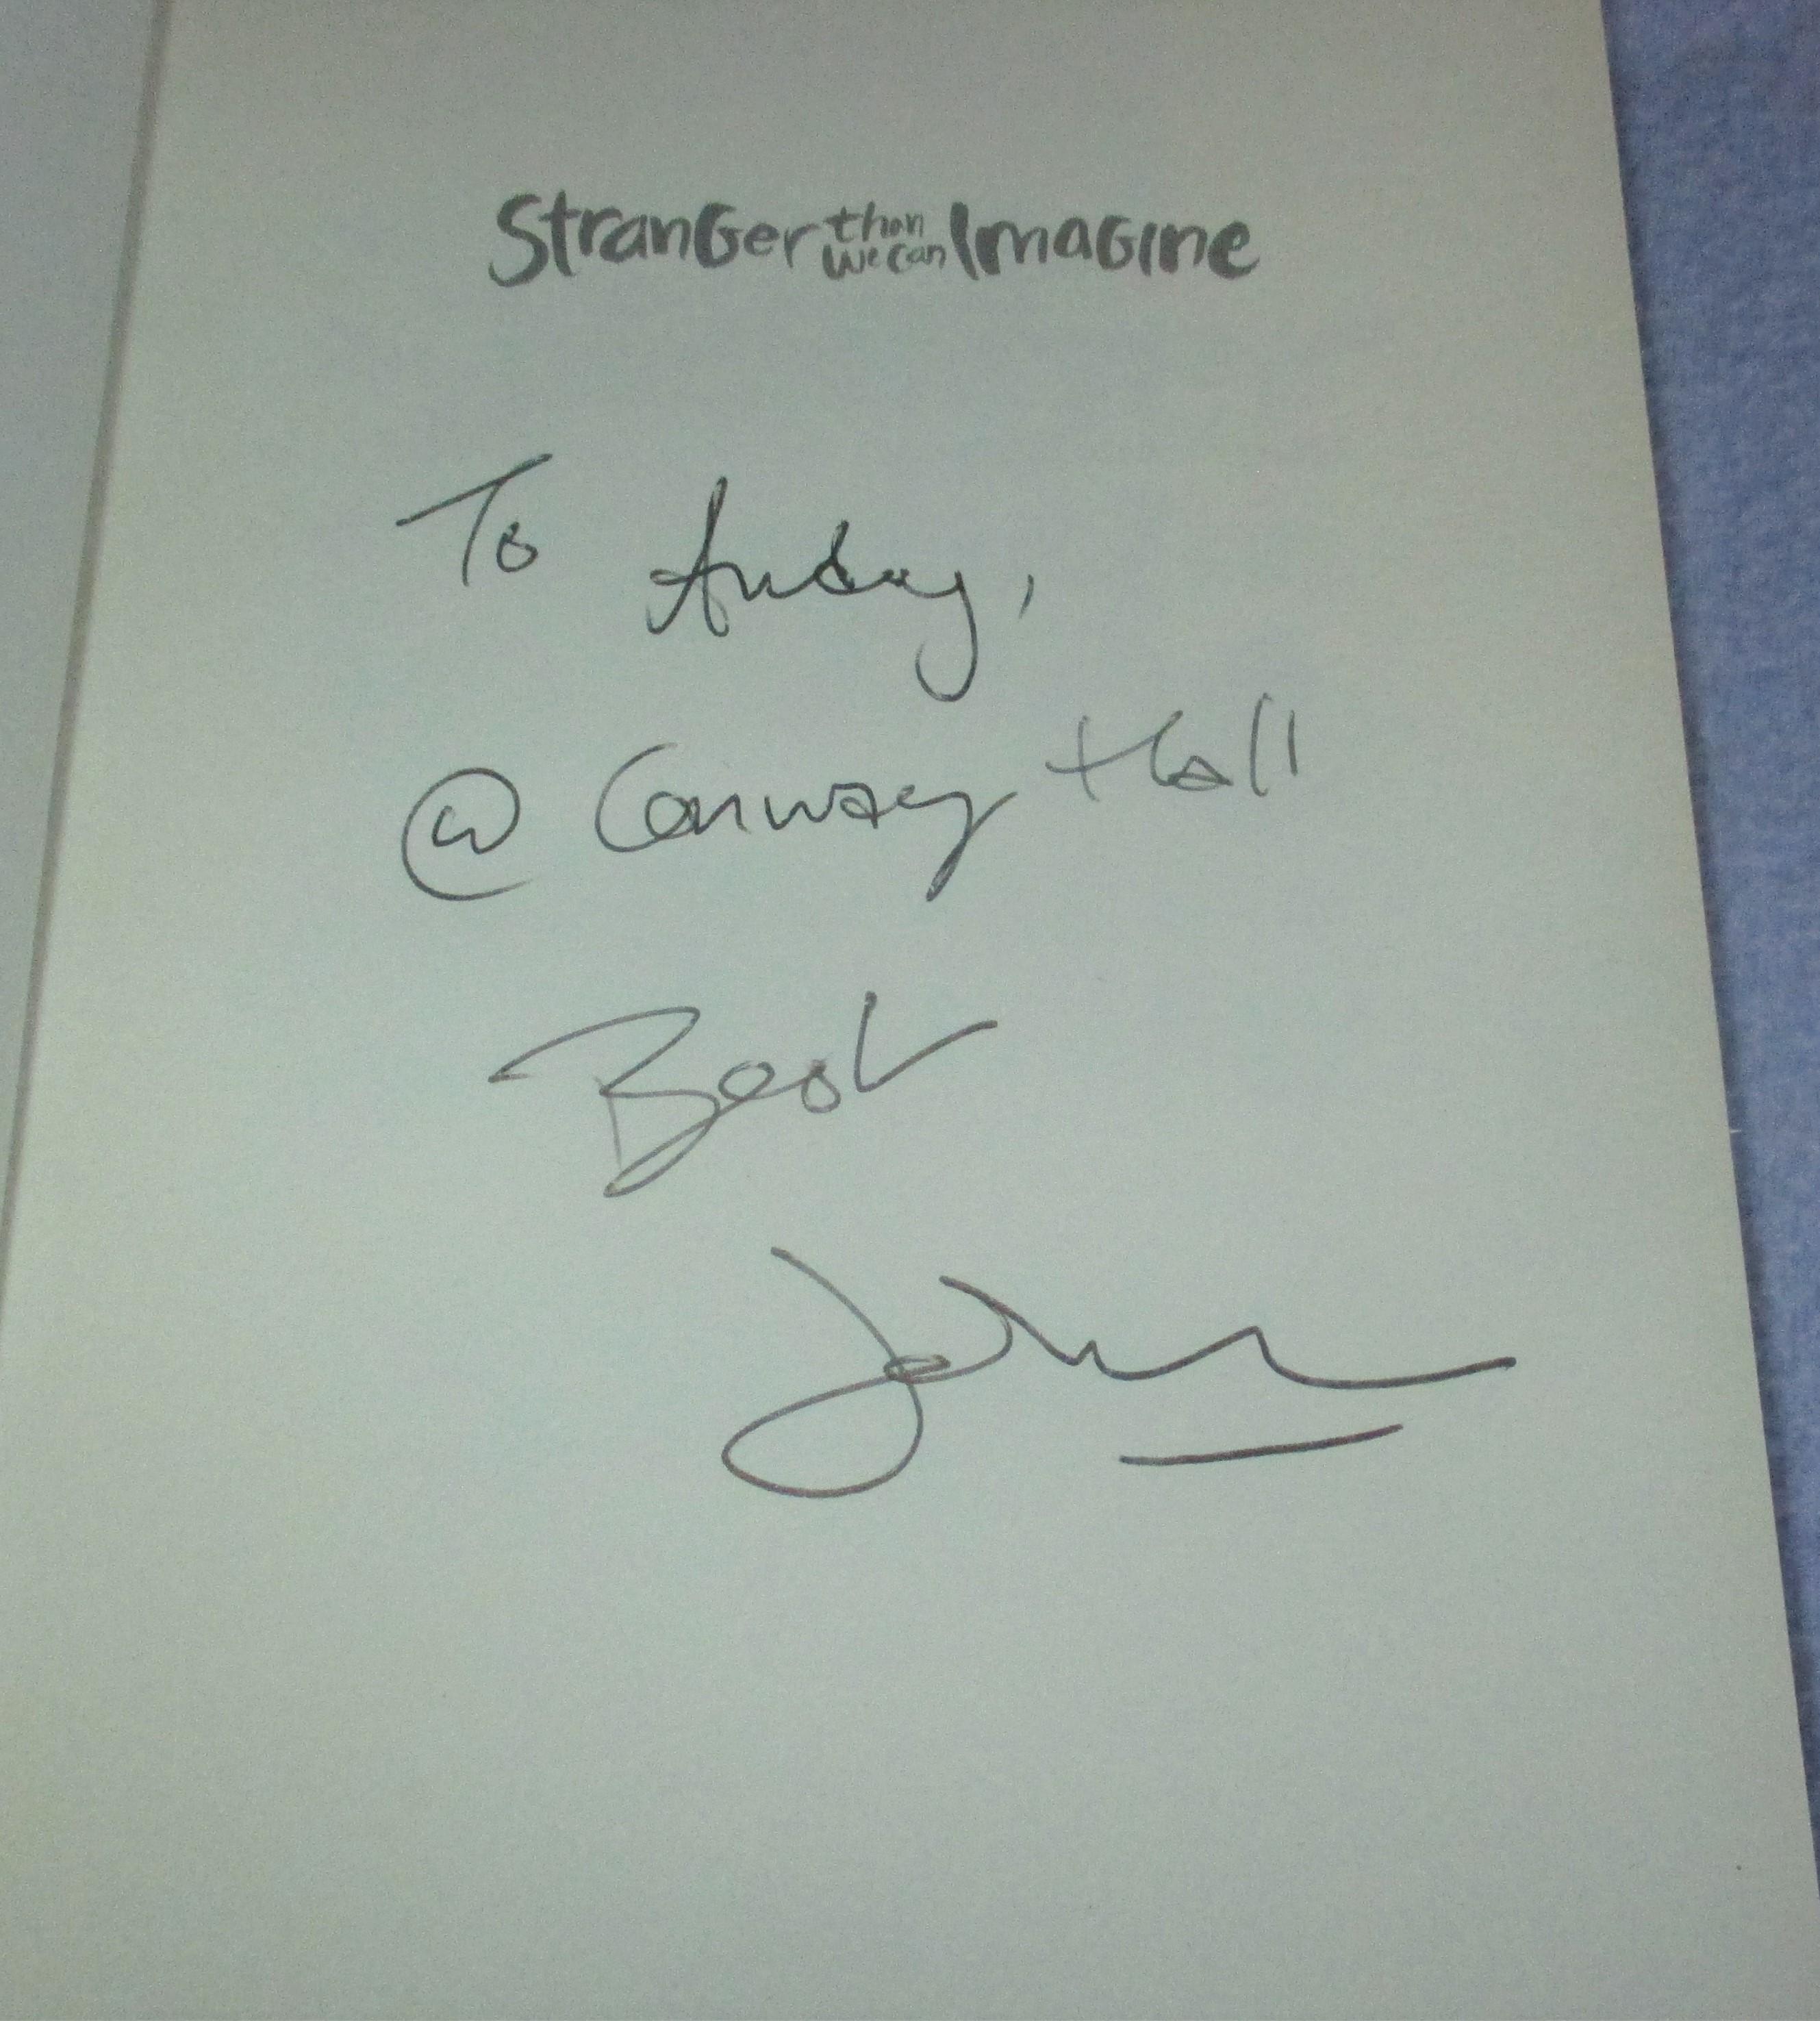 Stranger than we can Imagine
To Andy,
@ Conway Hall
Best
John